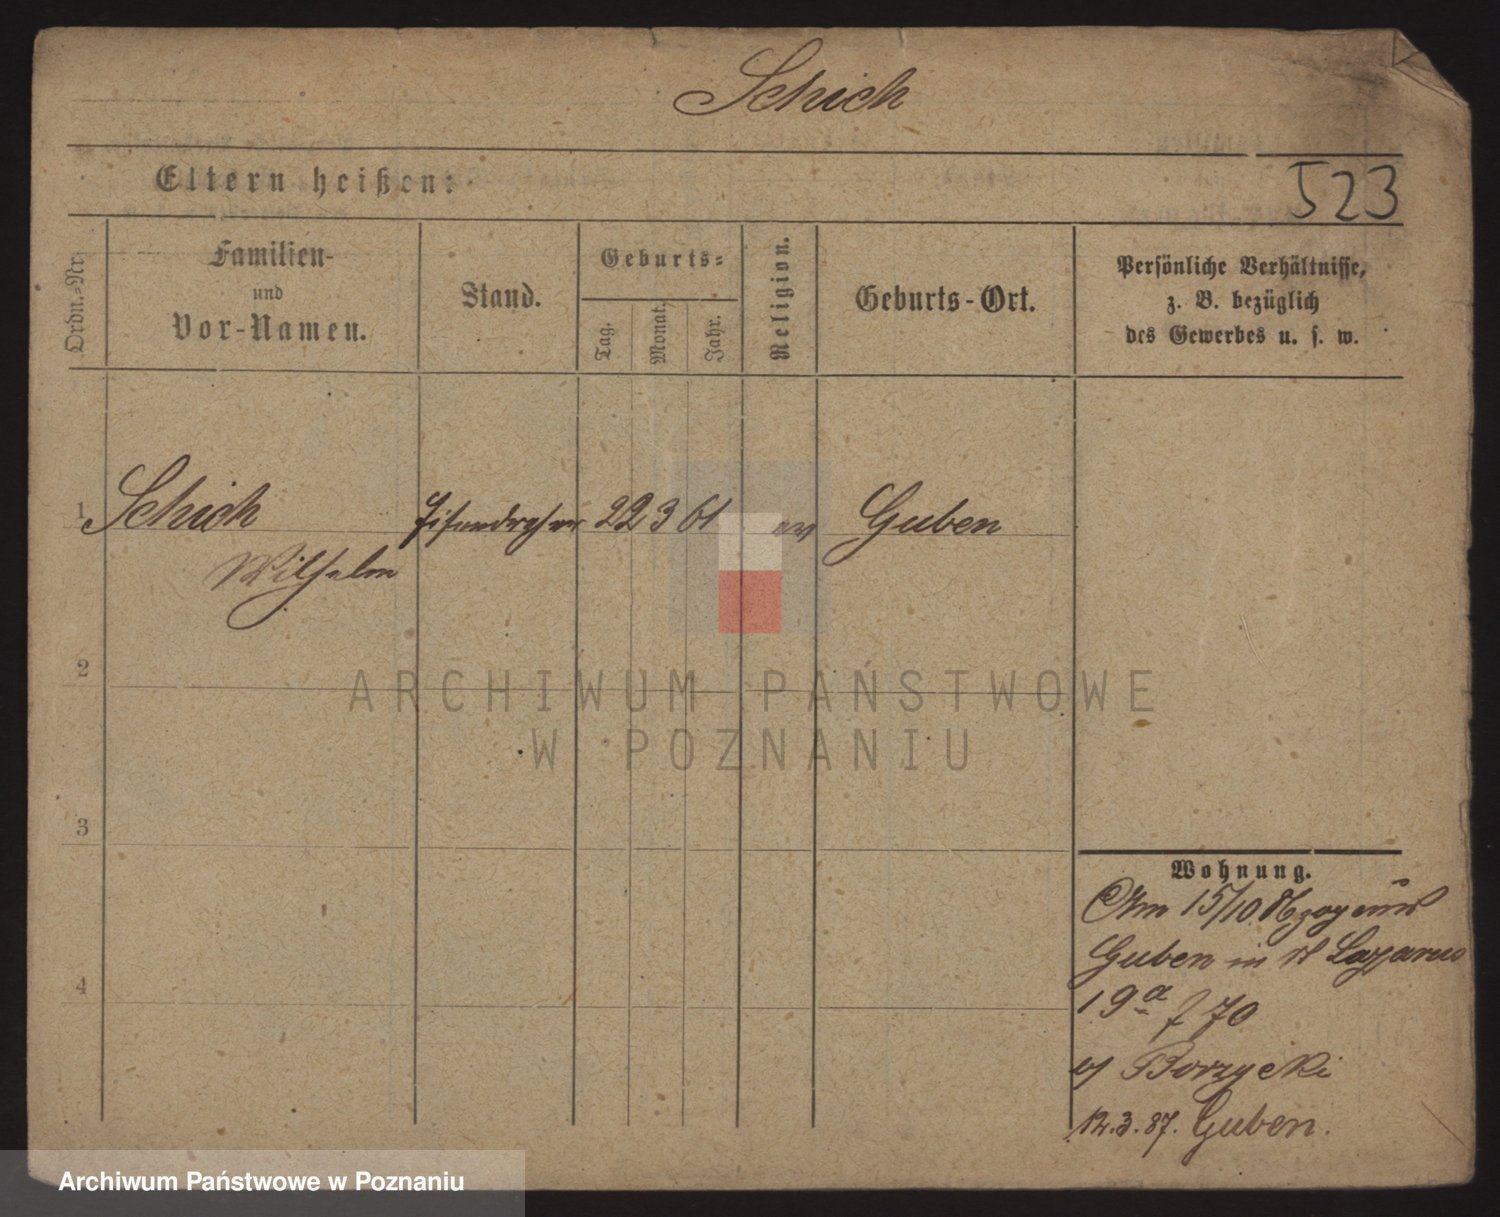 Schich
Eltern heißen:
523
Ordn.-Nr.
Familien-
und
Vor-Namen.
Stand.
Geburts-
Tag.
Monat.
Jahr.
Religion.
Geburts-Ort.
Persönliche Verhältnisse,
z. B. bezüglich
des Gewerbes u. s. w.
1 Schich Eisendreher 22 3 61 ev Guben
Wilhelm
2
3
4
ARCHIWUM PAŃSTWOWE
W POZNANIU
Wohnung.
Am 15/10 86 zog
Guben in St Lazarus
19a f 70
b/ Borzycki
12.3.87. Guben.
Archiwum Państwowe w Poznaniu